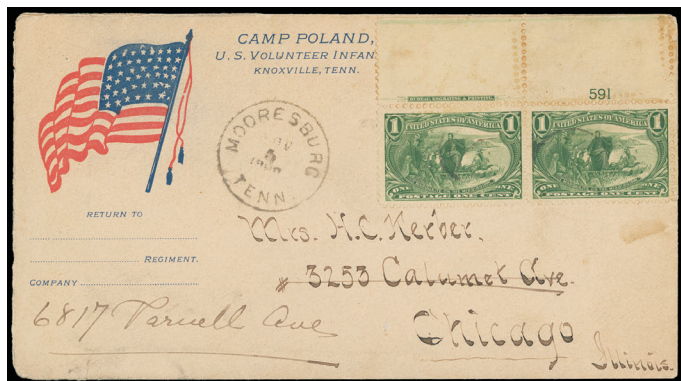 CAMP POLAND,
U.S. VOLUNTEER INFAN
KNOXVILLE, TENN.
BUREAU, ENGRAVING & PRINTING.
591
MOORESBURG
TENN.
1 UNITED STATES OF AMERICA 1
ONE POSTAGE ONE CENT ONE
1 UNITED STATES OF AMERICA 1
ONE POSTAGE ONE CENT ONE
RETURN TO
REGIMENT.
COMPANY
Mrs. H.C. Kerber,
3253 Calumet Ave.
6817 Parnell Ave
Chicago
Illinois.